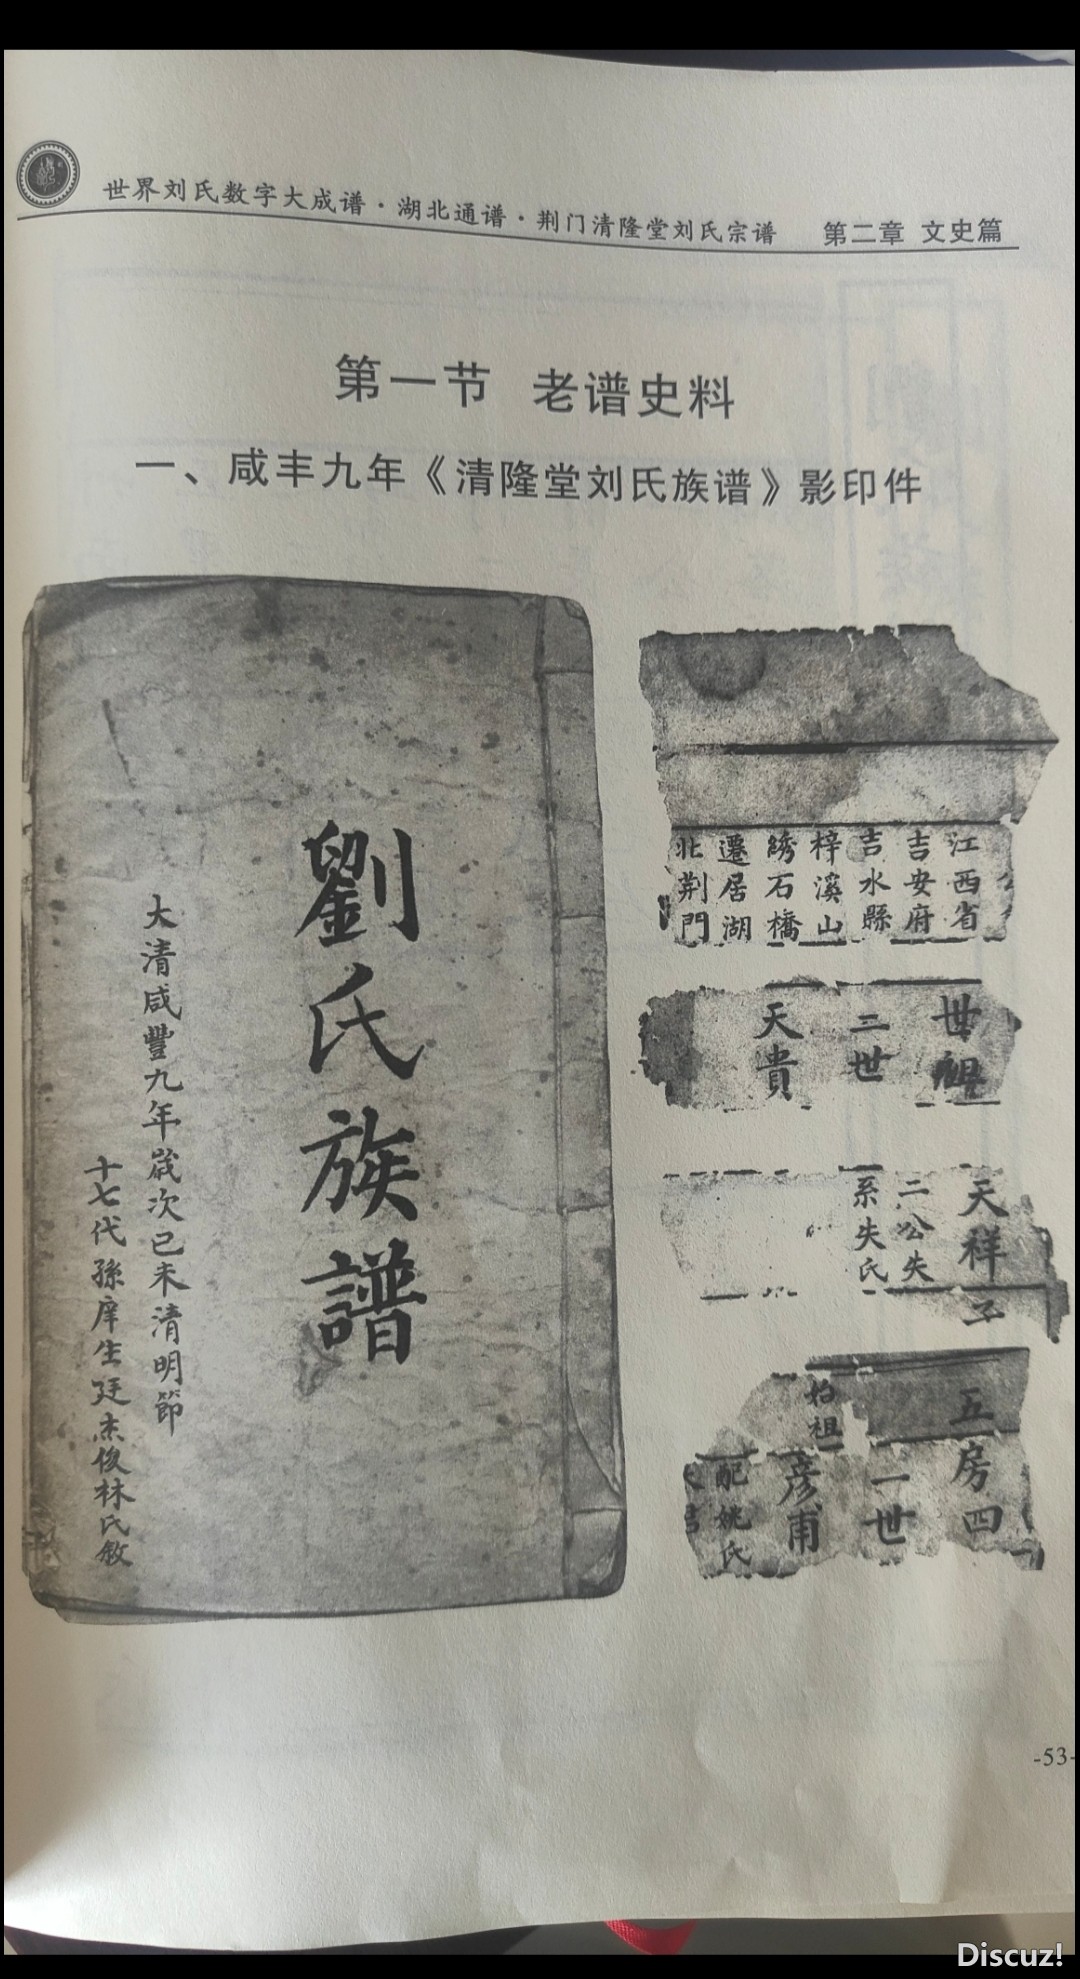 世界刘氏数字大成谱·湖北通谱·荆门清隆堂刘氏宗谱 第二章 文史篇
第一节 老谱史料
一、咸丰九年《清隆堂刘氏族谱》影印件
劉氏族譜
大清咸豐九年歲次己未清明節
十七代孫庠生廷杰俊林氏敘
江西省
吉安府
吉水縣
梓溪山
綉石橋
遷居湖
北荆門
世祖
二世
天貴
天祥子
二公失
系失氏
五房四
一世
始祖
彥甫
配姚氏
-53-
Discuz!